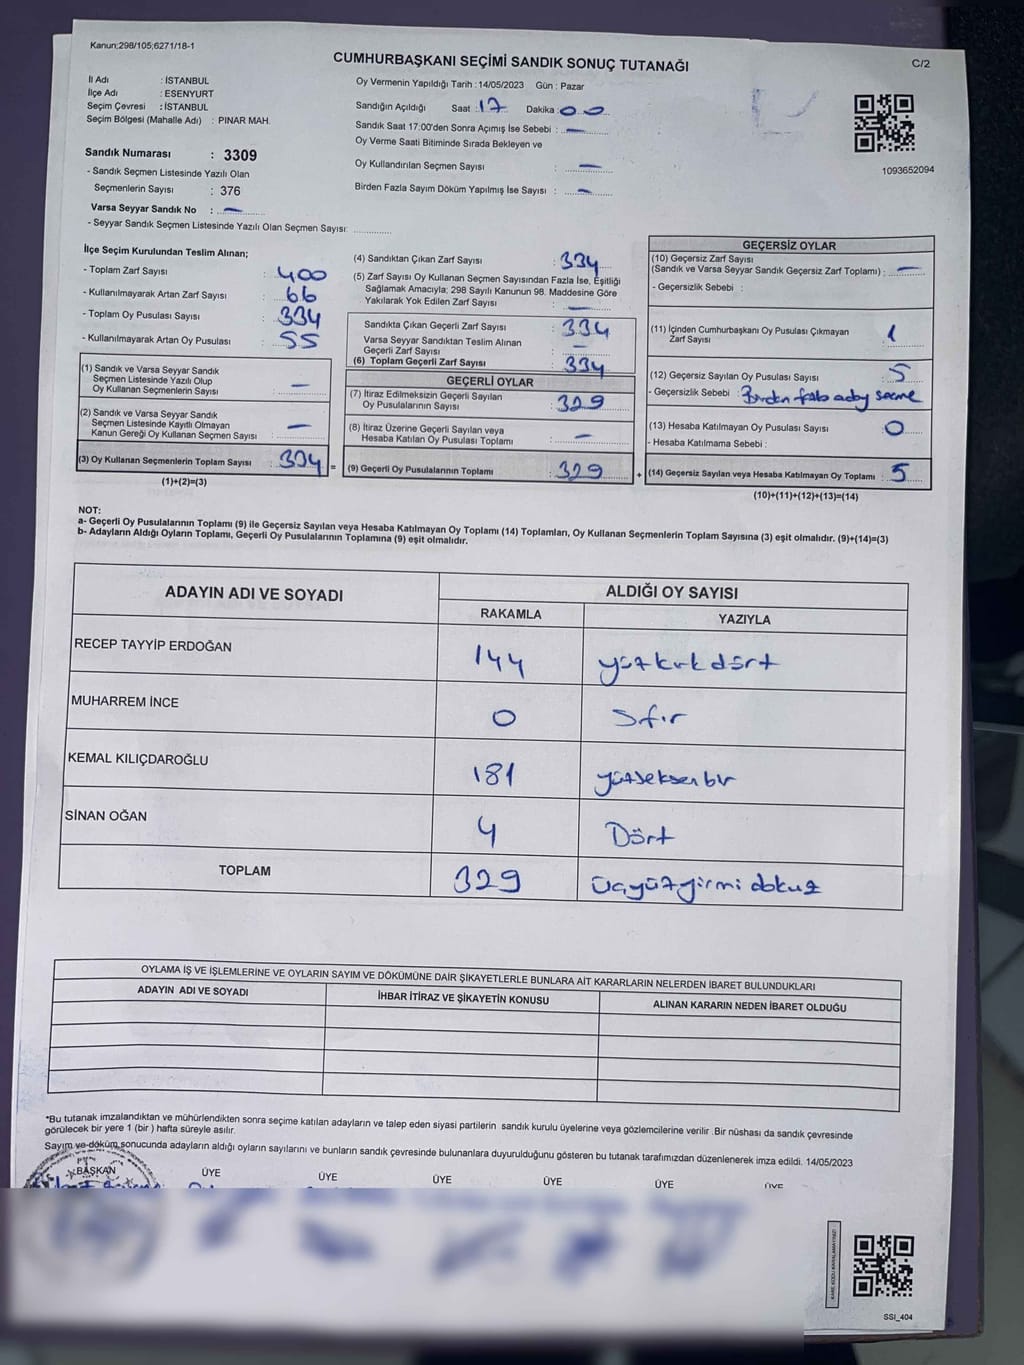 Kanun;298/105;6271/18-1
CUMHURBAŞKANI SEÇİMİ SANDIK SONUÇ TUTANAĞI
C/2
İl Adı : İSTANBUL
İlçe Adı : ESENYURT
Seçim Çevresi : İSTANBUL
Seçim Bölgesi (Mahalle Adı) : PINAR MAH.
Sandık Numarası : 3309
- Sandık Seçmen Listesinde Yazılı Olan
Seçmenlerin Sayısı : 376
Varsa Seyyar Sandık No : —
- Seyyar Sandık Seçmen Listesinde Yazılı Olan Seçmen Sayısı:
Oy Vermenin Yapıldığı Tarih : 14/05/2023 Gün : Pazar
Sandığın Açıldığı Saat : 17 Dakika : 00
Sandık Saat 17:00'den Sonra Açımış İse Sebebi : —
Oy Verme Saati Bitiminde Sırada Bekleyen ve
Oy Kullandırılan Seçmen Sayısı : —
Birden Fazla Sayım Döküm Yapılmış İse Sayısı : —
1093652094
İlçe Seçim Kurulundan Teslim Alınan;
- Toplam Zarf Sayısı : 400
- Kullanılmayarak Artan Zarf Sayısı : 66
- Toplam Oy Pusulası Sayısı : 334
- Kullanılmayarak Artan Oy Pusulası : 55
(1) Sandık ve Varsa Seyyar Sandık
Seçmen Listesinde Yazılı Olup
Oy Kullanan Seçmenlerin Sayısı : —
(2) Sandık ve Varsa Seyyar Sandık
Seçmen Listesinde Kayıtlı Olmayan
Kanun Gereği Oy Kullanan Seçmen Sayısı : —
(3) Oy Kullanan Seçmenlerin Toplam Sayısı : 334 =
(1)+(2)=(3)
(4) Sandıktan Çıkan Zarf Sayısı : 334
(5) Zarf Sayısı Oy Kullanan Seçmen Sayısından Fazla İse, Eşitliği
Sağlamak Amacıyla; 298 Sayılı Kanunun 98. Maddesine Göre
Yakılarak Yok Edilen Zarf Sayısı : —
Sandıkta Çıkan Geçerli Zarf Sayısı : 334
Varsa Seyyar Sandıktan Teslim Alınan
Geçerli Zarf Sayısı : —
(6) Toplam Geçerli Zarf Sayısı : 334
GEÇERLİ OYLAR
(7) İtiraz Edilmeksizin Geçerli Sayılan
Oy Pusulalarının Sayısı : 329
(8) İtiraz Üzerine Geçerli Sayılan veya
Hesaba Katılan Oy Pusulası Toplamı : —
(9) Geçerli Oy Pusulalarının Toplamı : 329 +
GEÇERSİZ OYLAR
(10) Geçersiz Zarf Sayısı
(Sandık ve Varsa Seyyar Sandık Geçersiz Zarf Toplamı) : —
- Geçersizlik Sebebi :
(11) İçinden Cumhurbaşkanı Oy Pusulası Çıkmayan
Zarf Sayısı : 1
(12) Geçersiz Sayılan Oy Pusulası Sayısı : 5
- Geçersizlik Sebebi : Birden fazla aday seçme
(13) Hesaba Katılmayan Oy Pusulası Sayısı : 0
- Hesaba Katılmama Sebebi :
(14) Geçersiz Sayılan veya Hesaba Katılmayan Oy Toplamı : 5
(10)+(11)+(12)+(13)=(14)
NOT:
a- Geçerli Oy Pusulalarının Toplamı (9) ile Geçersiz Sayılan veya Hesaba Katılmayan Oy Toplamı (14) Toplamları, Oy Kullanan Seçmenlerin Toplam Sayısına (3) eşit olmalıdır. (9)+(14)=(3)
b- Adayların Aldığı Oyların Toplamı, Geçerli Oy Pusulalarının Toplamına (9) eşit olmalıdır.
ADAYIN ADI VE SOYADI
ALDIĞI OY SAYISI
RAKAMLA YAZIYLA
RECEP TAYYİP ERDOĞAN 144 yüzkırkdört
MUHARREM İNCE 0 Sıfır
KEMAL KILIÇDAROĞLU 181 yüzseksenbir
SİNAN OĞAN 4 Dört
TOPLAM 329 üçyüzyirmi dokuz
OYLAMA İŞ VE İŞLEMLERİNE VE OYLARIN SAYIM VE DÖKÜMÜNE DAİR ŞİKAYETLERLE BUNLARA AİT KARARLARIN NELERDEN İBARET BULUNDUKLARI
ADAYIN ADI VE SOYADI İHBAR İTİRAZ VE ŞİKAYETİN KONUSU ALINAN KARARIN NEDEN İBARET OLDUĞU
*Bu tutanak imzalandıktan ve mühürlendikten sonra seçime katılan adayların ve talep eden siyasi partilerin sandık kurulu üyelerine veya gözlemcilerine verilir .Bir nüshası da sandık çevresinde
görülecek bir yere 1 (bir ) hafta süreyle asılır.
Sayım ve döküm sonucunda adayların aldığı oyların sayılarını ve bunların sandık çevresinde bulunanlara duyurulduğunu gösteren bu tutanak tarafımızdan düzenlenerek imza edildi. 14/05/2023
BAŞKAN ÜYE ÜYE ÜYE ÜYE ÜYE ÜYE
SSI_404